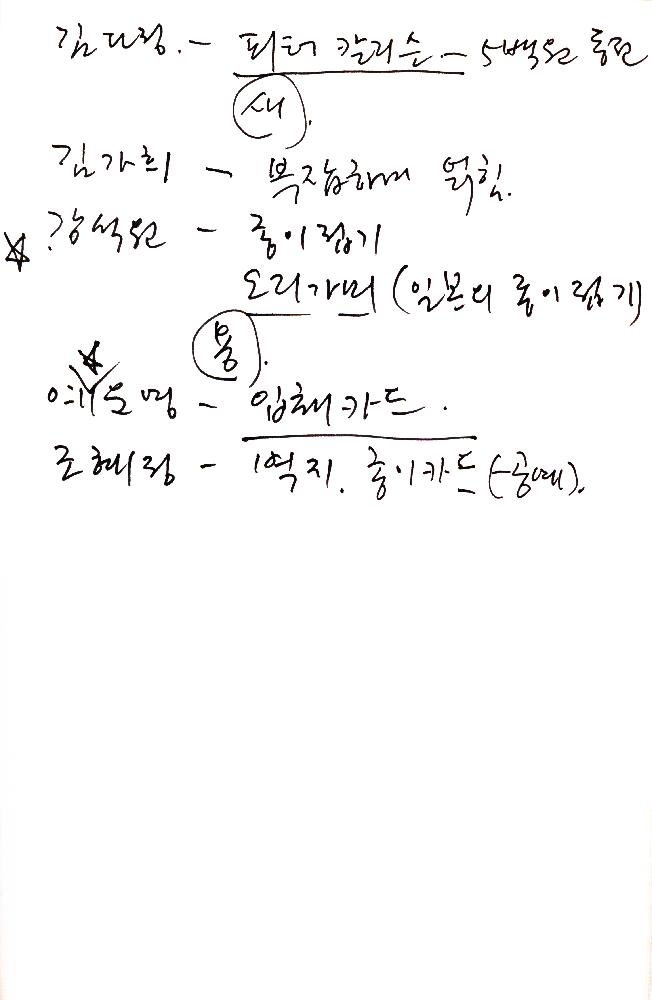 김다정. - 피터 칼리슨 - 5백원 동전
새.
김가희 - 복잡하게 얽힘.
☆ 강석원 - 종이접기
오리가미 (일본의 종이접기)
용.
☆ - 입체카드.
조혜정 - 종이카드 (-공예).